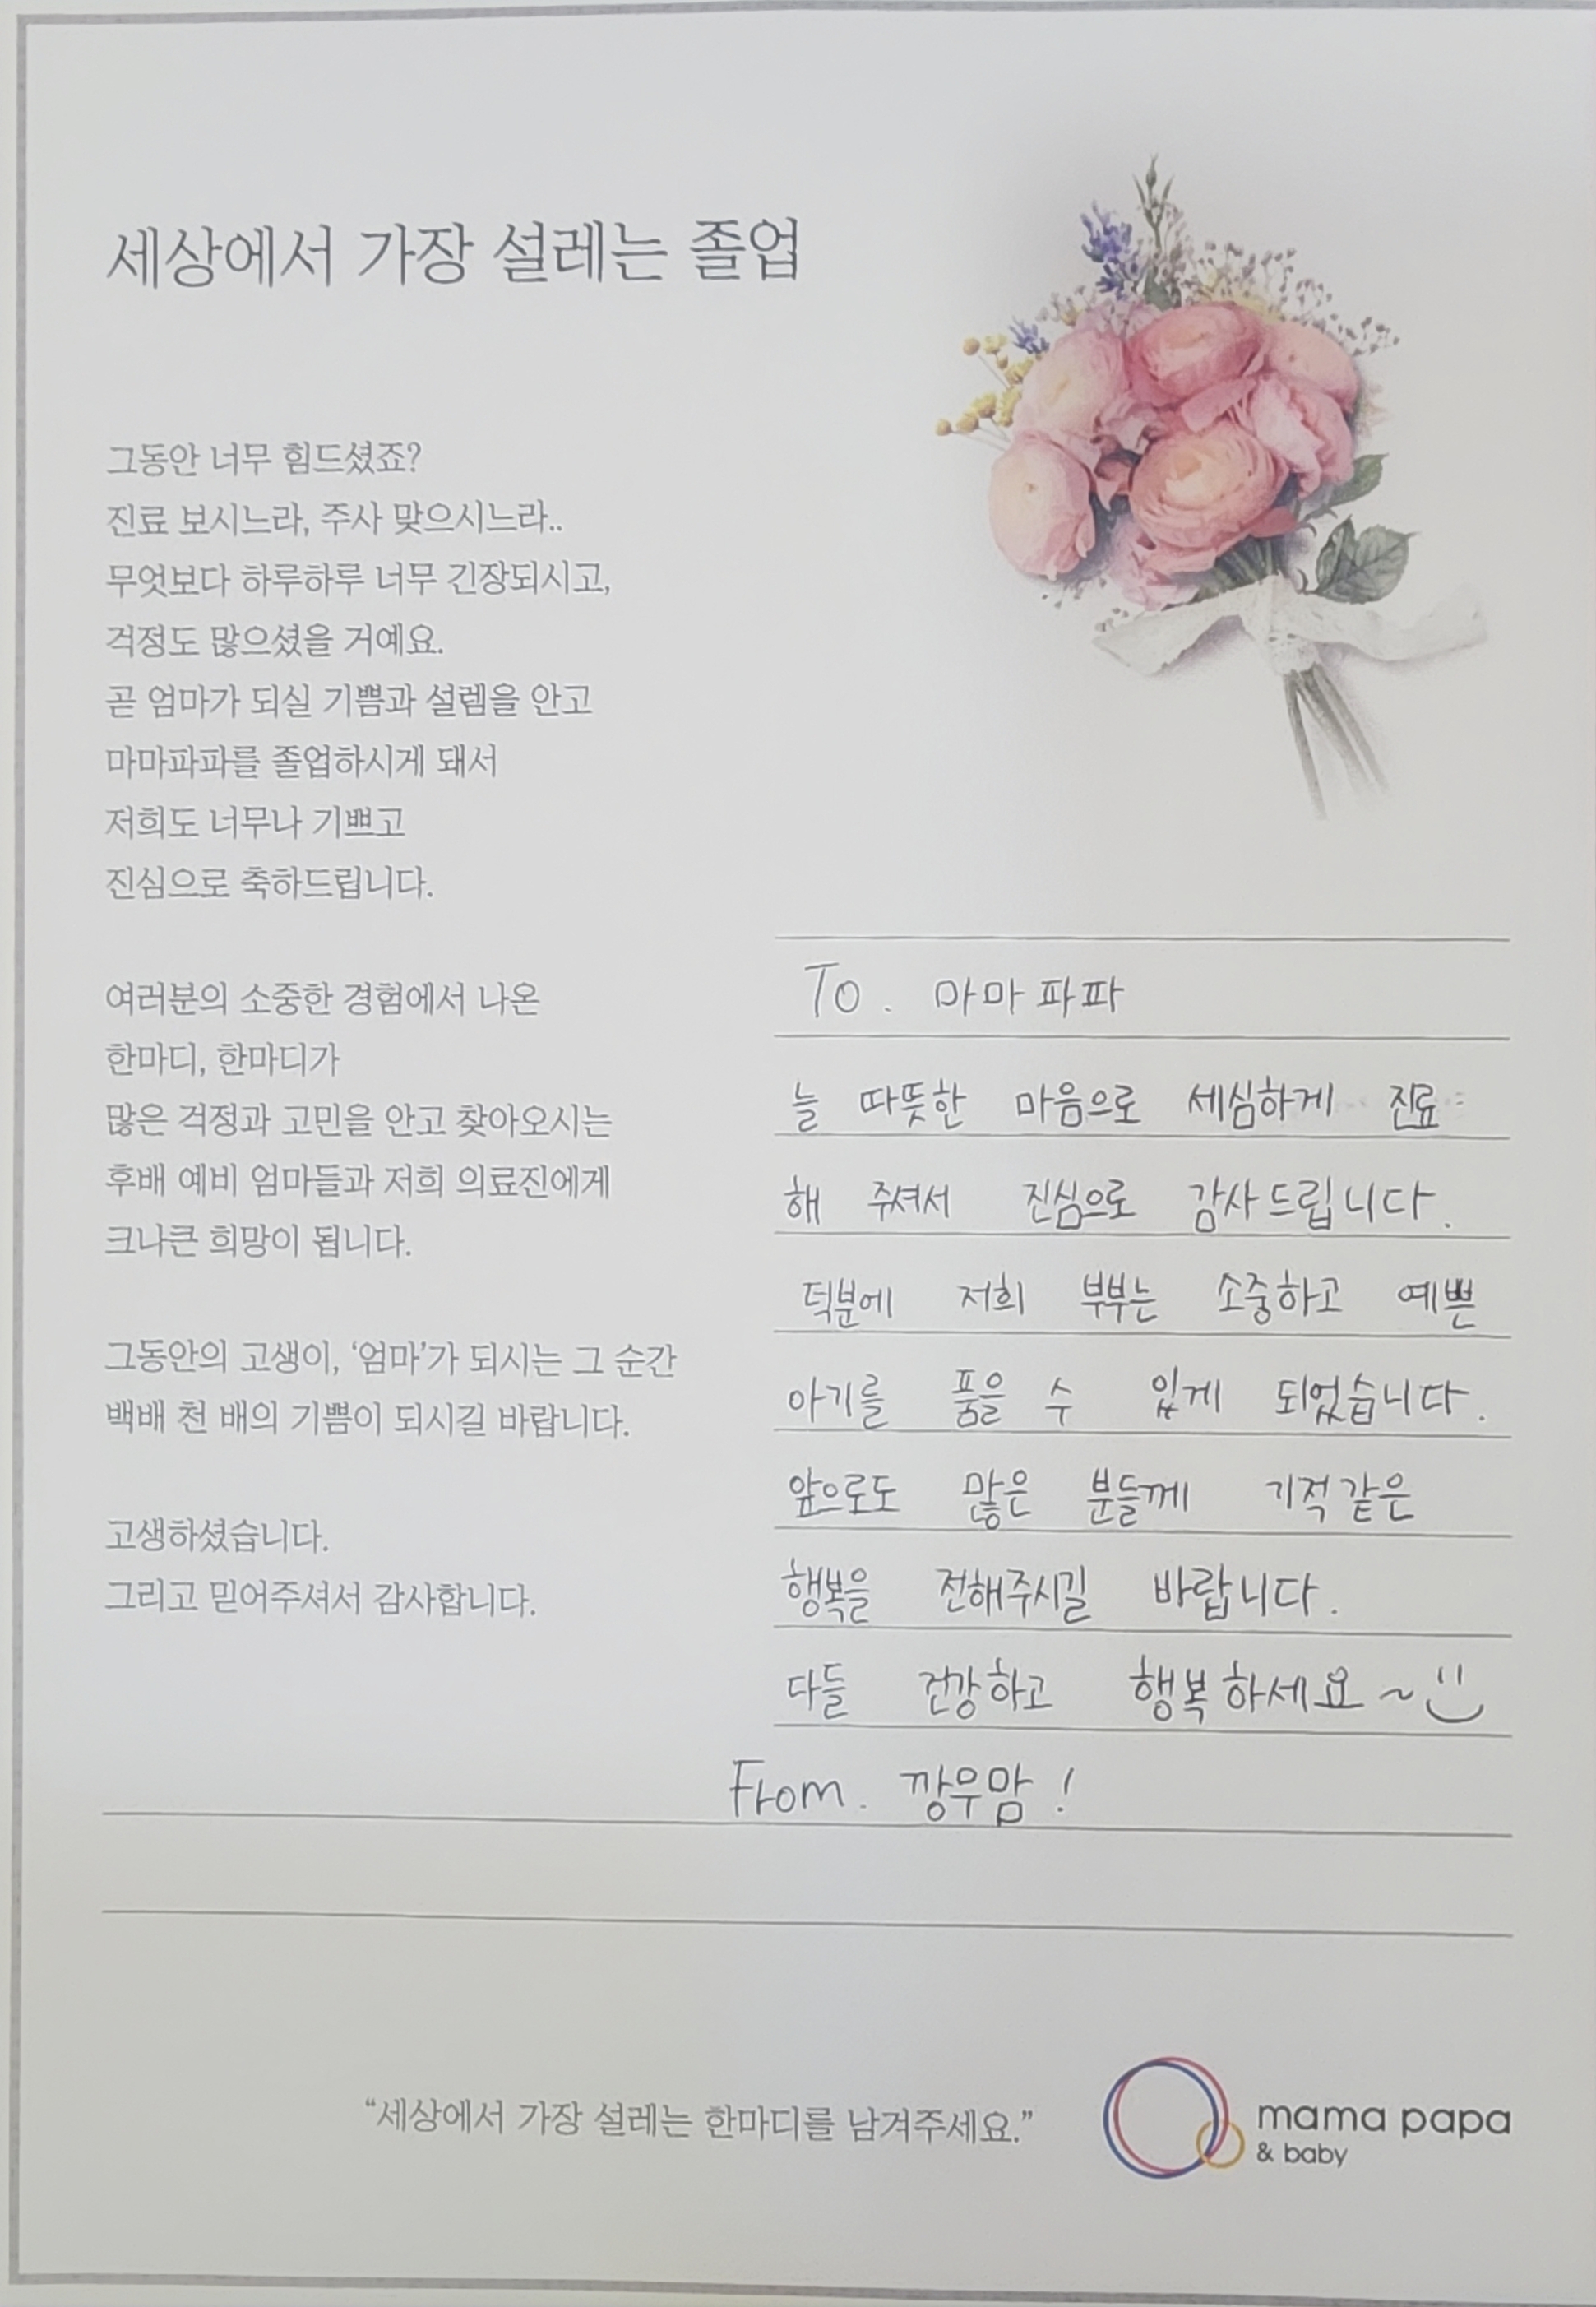 세상에서 가장 설레는 졸업
그동안 너무 힘드셨죠?
진료 보시느라, 주사 맞으시느라..
무엇보다 하루하루 너무 긴장되시고,
걱정도 많으셨을 거예요.
곧 엄마가 되실 기쁨과 설렘을 안고
마마파파를 졸업하시게 돼서
저희도 너무나 기쁘고
진심으로 축하드립니다.
여러분의 소중한 경험에서 나온
한마디, 한마디가
많은 걱정과 고민을 안고 찾아오시는
후배 예비 엄마들과 저희 의료진에게
크나큰 희망이 됩니다.
그동안의 고생이, ‘엄마’가 되시는 그 순간
백배 천 배의 기쁨이 되시길 바랍니다.
고생하셨습니다.
그리고 믿어주셔서 감사합니다.
To. 마마파파
늘 따뜻한 마음으로 세심하게 진료
해 주셔서 진심으로 감사드립니다.
덕분에 저희 부부는 소중하고 예쁜
아기를 품을 수 있게 되었습니다.
앞으로도 많은 분들께 기적같은
행복을 전해주시길 바랍니다.
다들 건강하고 행복하세요~
From. 깡우맘!
“세상에서 가장 설레는 한마디를 남겨주세요.”
mama papa
& baby